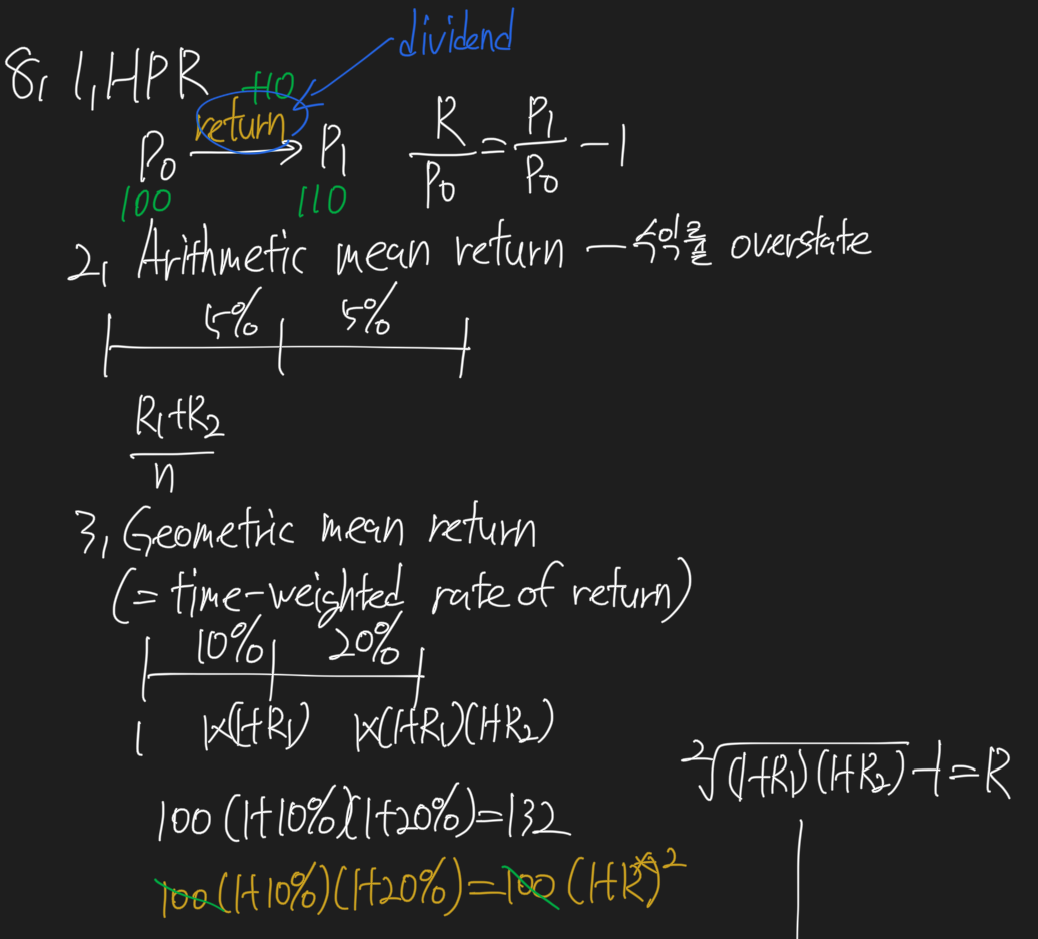 dividend
8, 1, HPR +10
return
P₀ → P₁ R/P₀ = P₁/P₀ - 1
100 110
2, Arithmetic mean return - 수익률 overstate
5% 5%
R₁+R₂
n
3, Geometric mean return
(= time-weighted rate of return)
10% 20%
1 1×(1+R₁) 1×(1+R₁)(1+R₂)
²√(1+R₁)(1+R₂) - 1 = R
100(1+10%)(1+20%)=132
100(1+10%)(1+20%)=100(1+R*)²